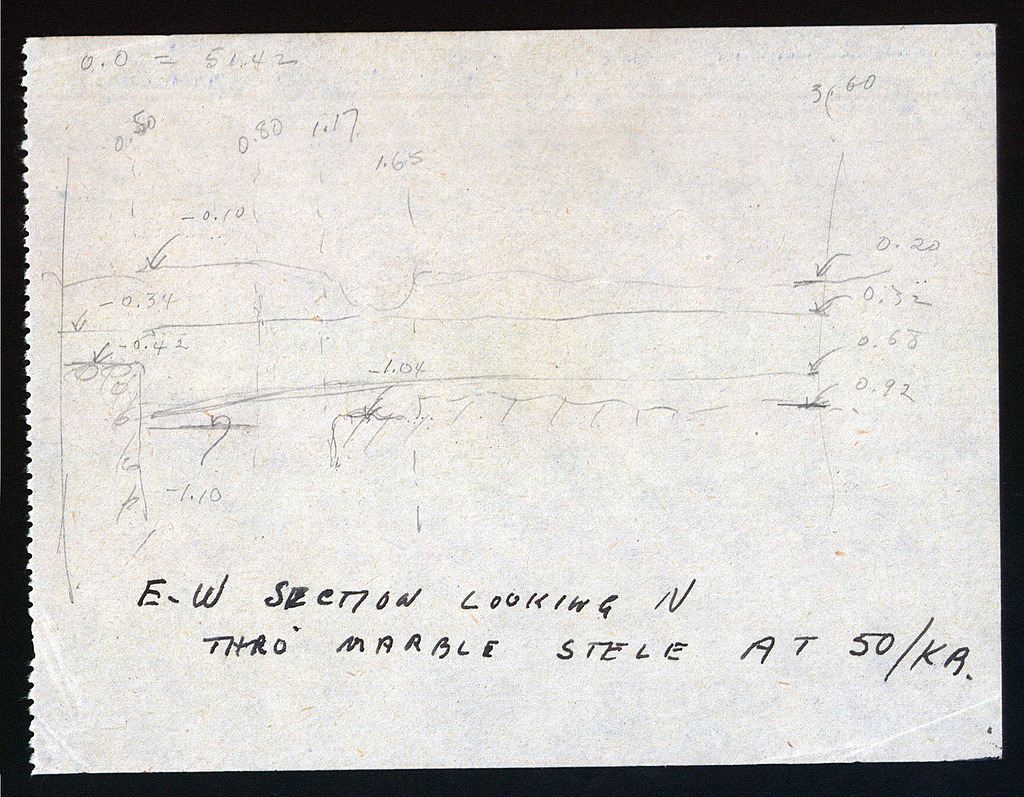 0.0 = 51.42
3.60
0.50
0.80
1.17
1.65
-0.10
0.20
-0.34
0.32
-0.42
0.68
-1.04
0.92
-1.10
E-W SECTION LOOKING N
THRO' MARBLE STELE AT 50/KA.